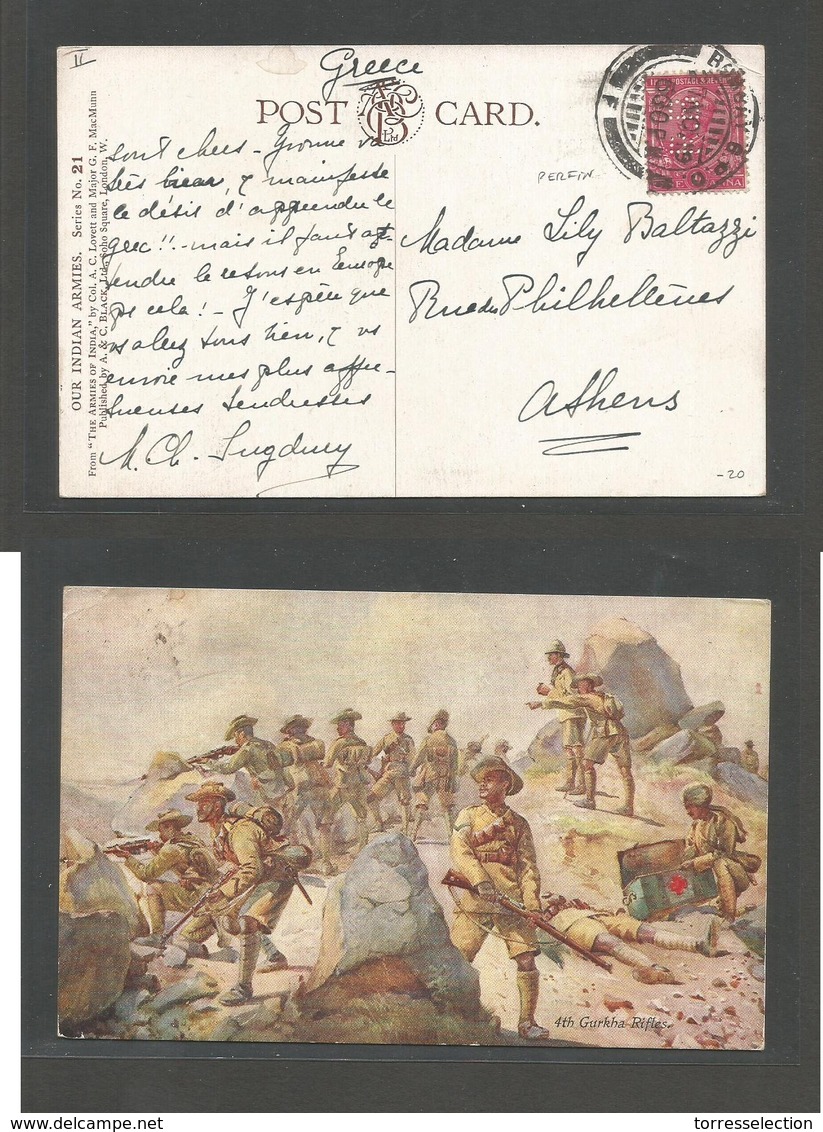 II
Greece
POST CARD.
OUR INDIAN ARMIES. Series No. 21
From "THE ARMIES OF INDIA," by Col. A. C. Lovett and Major G. F. MacMunn
Published by A. & C. BLACK, Ltd., Soho Square, London, W.
sont chers - Yvonne va
très bien, & manifeste
le désir d'apprendre le
grec!! - mais il faut at-
tendre le retour en Europe
pr cela! - J'espère que
vs allez tous bien, & vs
envoie mes plus affec-
tueuses tendresses
BOMBAY
PERFIN
Madame Lily Baltazzi
Rue des Philhellènes
Athens
-20
4th Gurkha Rifles.
torresselection